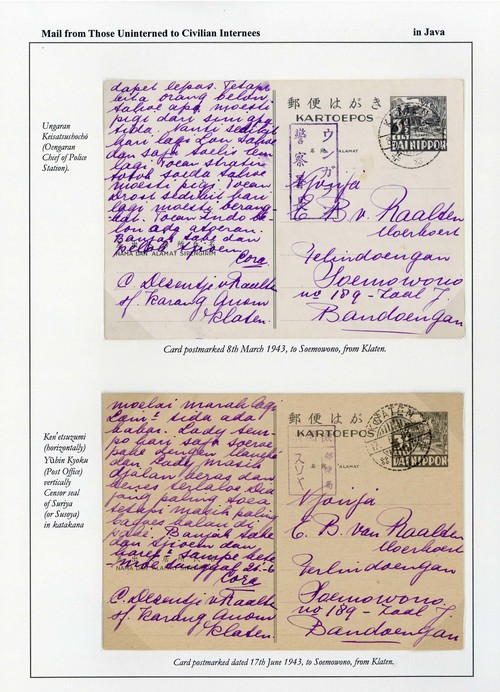 Mail from Those Uninterned to Civilian Internees
in Java
Ungaran
Keisatsushochō
(Oengaran
Chief of Police
Station).
dapet lepas. Tetapi
kita orang belon
taoe apa, moesti
pigi dari sini apa
tida. Nanti sedikit
hari lagi Lau tahoe
dan saja toelis den
lagi. Toean
totok soeda
moesti pigi. Toean
Drost sedikit hari
lagi moesti berang-
kat. Toean Indo be-
lon ada atoeran.
Banjak tabe dan
peloek tjioem
Cora
NAMA DAN ALAMAT SIPENGIRIM
C. Dezentjé v Raalten
s/f Karang Anom
Klaten.
郵便はがき
KARTOEPOS
ALAMAT
ウンガラン
警察署長
3½
CENT
DAI NIPPON
Njonja
C. B. v. Raalten
Voerhoert
Ferlindoengan
Soemowono
no 189 - Zaal J.
Bandoengan
Card postmarked 8th March 1943, to Soemowono, from Klaten.
Ken'etsuzumi
(horizontally)
Yūbin Kyoku
(Post Office)
vertically
Censor seal
of Suriya
(or Susoya)
in katakana
moelai marah lagi
tida ada
kabar. Lady
hari saja soerae
pake dengen
dan Lady
djalan beras dan
jang paling
tetapi makin paling
bagoes kaloe di
pake. Banjak tabe
dan tjioem dan
harep sampe kete-
moe tanggal 21-6
Cora
NAMA DAN ALAMAT SIPENGIRIM
C. Dezentjé v Raalten
s/f Karang Anom
Klaten.
郵便はがき
KARTOEPOS
ALAMAT
郵便局
KLATEN
3½
CENT
DAI NIPPON
Njonja
C. B. van Raalten
Voerhoert
Ferlindoengan
Soemowono.
no 189 - Zaal J.
Bandoengan
Card postmarked dated 17th June 1943, to Soemowono, from Klaten.